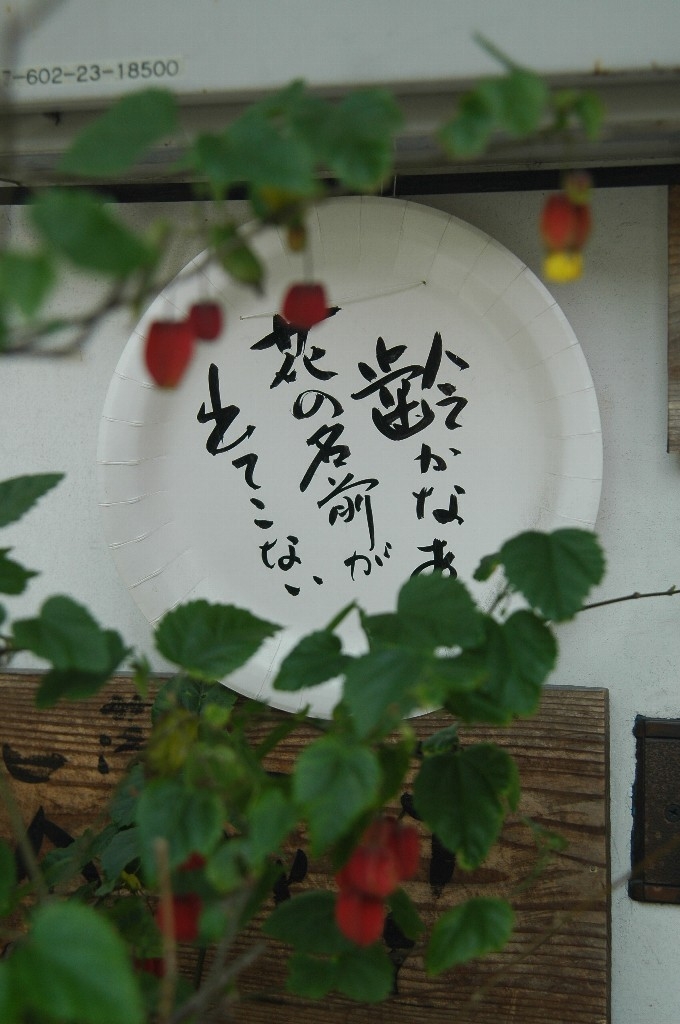 7-602-23-18500
齢かなあ
花の名前が
出てこない